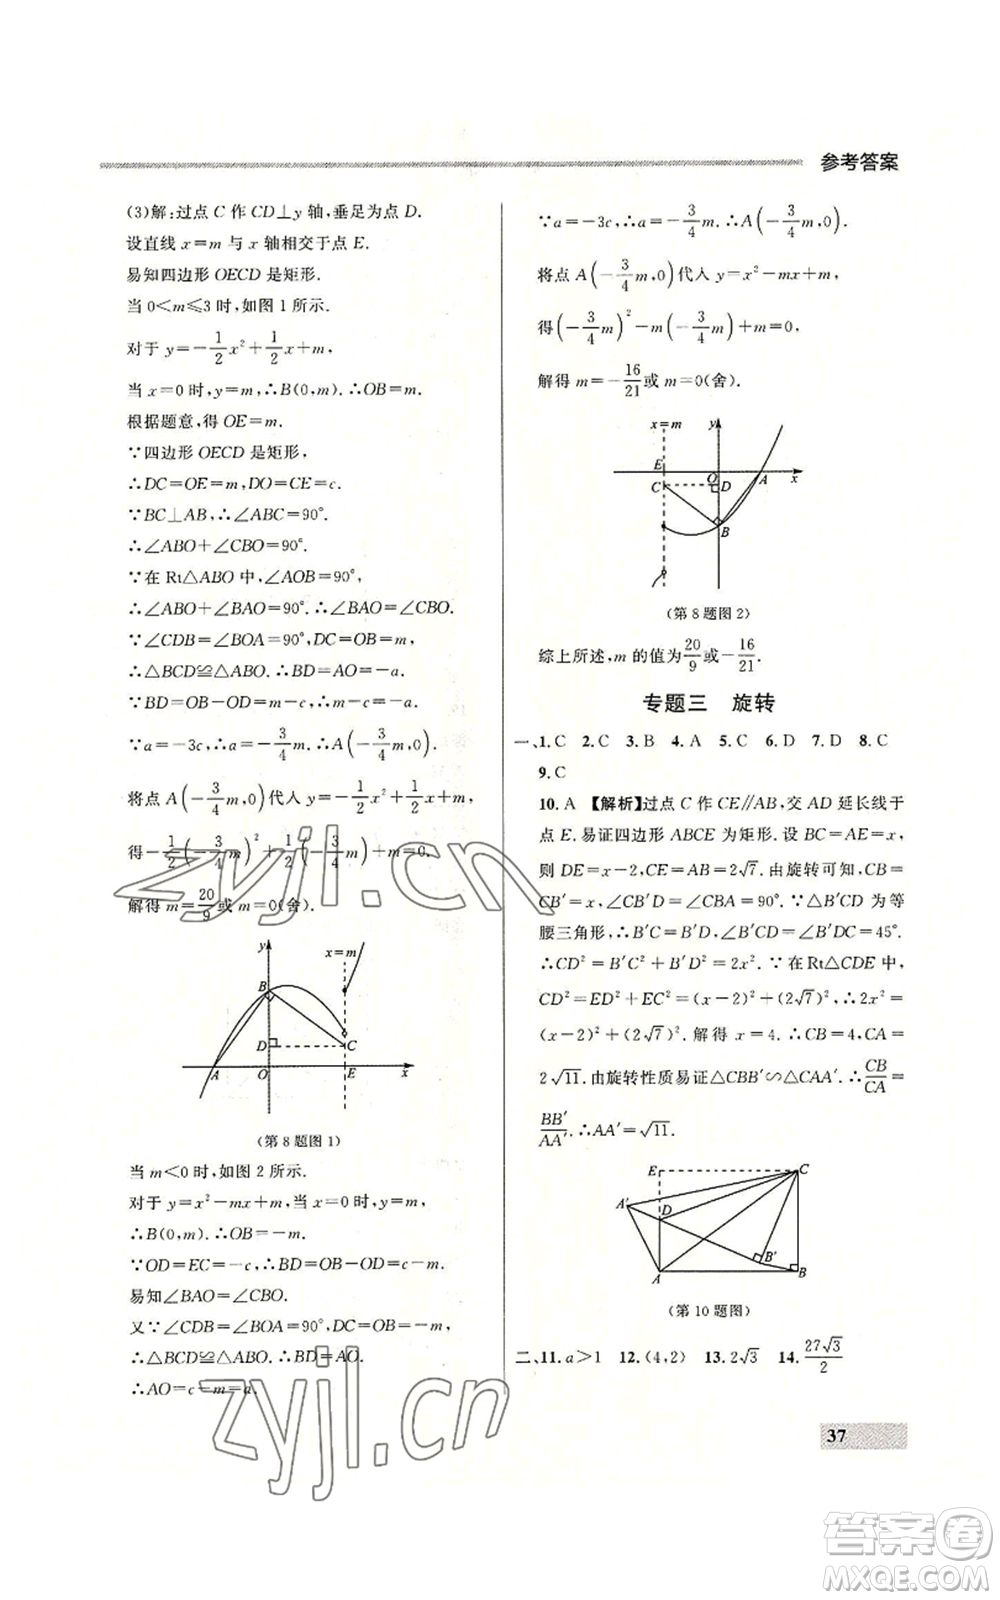 参考答案
(3)解:过点 C 作 CD⊥y 轴,垂足为点 D.
设直线 x=m 与 x 轴相交于点 E.
易知四边形 OECD 是矩形.
当 0<m≤3 时,如图 1 所示.
对于 y=-\frac{1}{2}x²+\frac{1}{2}x+m,
当 x=0 时,y=m,∴B(0,m).∴OB=m.
根据题意,得 OE=m.
∵四边形 OECD 是矩形,
∴DC=OE=m,DO=CE=c.
∵BC⊥AB,∴∠ABC=90°.
∴∠ABO+∠CBO=90°.
∵在 Rt△ABO 中,∠AOB=90°,
∴∠ABO+∠BAO=90°.∴∠BAO=∠CBO.
∵∠CDB=∠BOA=90°,DC=OB=m,
∴△BCD≌△ABO.∴BD=AO=-a.
∵BD=OB-OD=m-c,∴m-c=-a.
∵a=-3c,∴a=-\frac{3}{4}m.∴A(-\frac{3}{4}m,0).
将点 A(-\frac{3}{4}m,0)代入 y=-\frac{1}{2}x²+\frac{1}{2}x+m,
得-\frac{1}{2}(-\frac{3}{4}m)²+\frac{1}{2}(-\frac{3}{4}m)+m=0.
解得 m=\frac{20}{9}或 m=0(舍).
y
x=m
B
D
C
A
O
E
x
(第 8 题图 1)
当 m<0 时,如图 2 所示.
对于 y=x²-mx+m,当 x=0 时,y=m,
∴B(0,m).∴OB=-m.
∵OD=EC=-c,∴BD=OB-OD=c-m.
易知∠BAO=∠CBO.
又∵∠CDB=∠BOA=90°,DC=OB=-m,
∴△BCD≌△ABO.∴BD=AO=a.
∴AO=c-m=a.
∵a=-3c,∴a=-\frac{3}{4}m.∴A(-\frac{3}{4}m,0).
将点 A(-\frac{3}{4}m,0)代入 y=x²-mx+m,
得(-\frac{3}{4}m)²-m(-\frac{3}{4}m)+m=0,
解得 m=-\frac{16}{21}或 m=0(舍).
x=m
y
E
O
A
x
C
D
B
(第 8 题图 2)
综上所述,m 的值为\frac{20}{9}或-\frac{16}{21}.
专题三 旋转
一、1.C 2.C 3.B 4.A 5.C 6.D 7.D 8.C
9.C
10.A 【解析】过点 C 作 CE∥AB,交 AD 延长线于
点 E.易证四边形 ABCE 为矩形.设 BC=AE=x,
则 DE=x-2,CE=AB=2√7.由旋转可知,CB=
CB′=x,∠CB′D=∠CBA=90°.∵△CB′D 为等
腰三角形,∴B′C=B′D,∠B′DC=∠B′CD=45°.
∴CD²=B′C²+B′D²=2x².∵在 Rt△CDE 中,
CD²=ED²+EC²=(x-2)²+(2√7)²,∴2x²=
(x-2)²+(2√7)².解得 x=4.∴CB=4,CA=
2√11.由旋转性质易证△CBB′∽△CAA′.∴\frac{CB}{CA}=
\frac{BB′}{AA′}.∴AA′=√11.
E
C
A′
D
B′
A
B
(第 10 题图)
二、11.a>1 12.(4,2) 13.2√3 14.\frac{27√3}{2}
37
zyjl.cn
zyjl.cn
答案圈
MXQE.COM